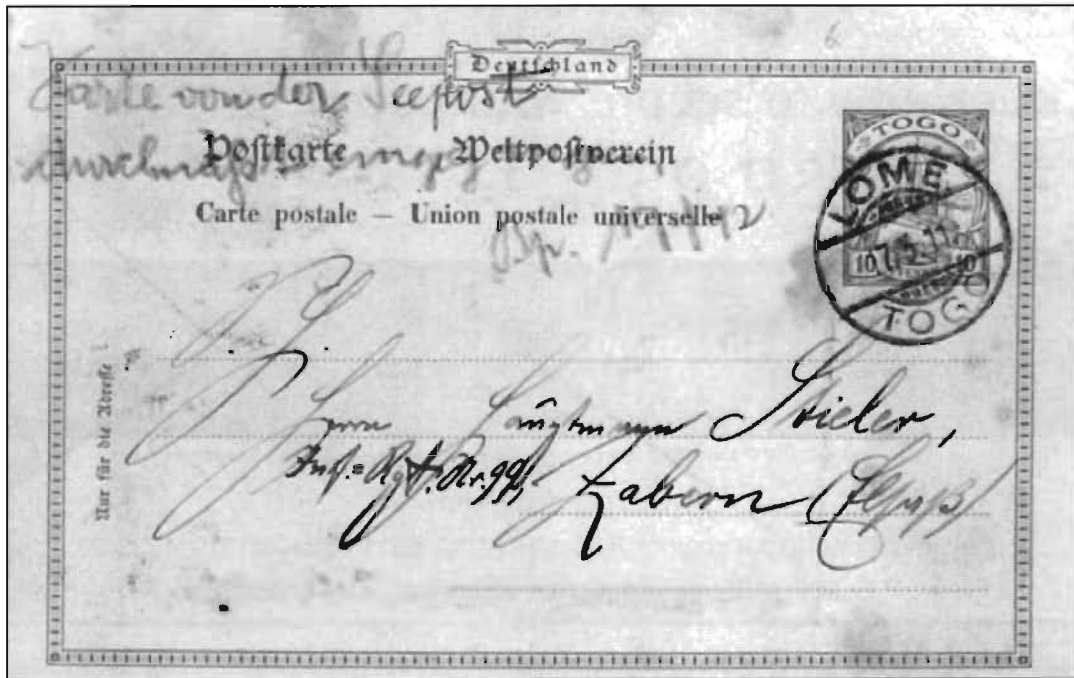 Deutschland
Karte von der Seepost
Postkarte Weltpostverein
Carte postale — Union postale universelle
TOGO
10 10
LOME
7.5.11
TOGO
Nur für die Adresse
Herrn Hauptmann Stieler,
Inf.=Rgt. Nr. 99,
Zabern (Elsaß)